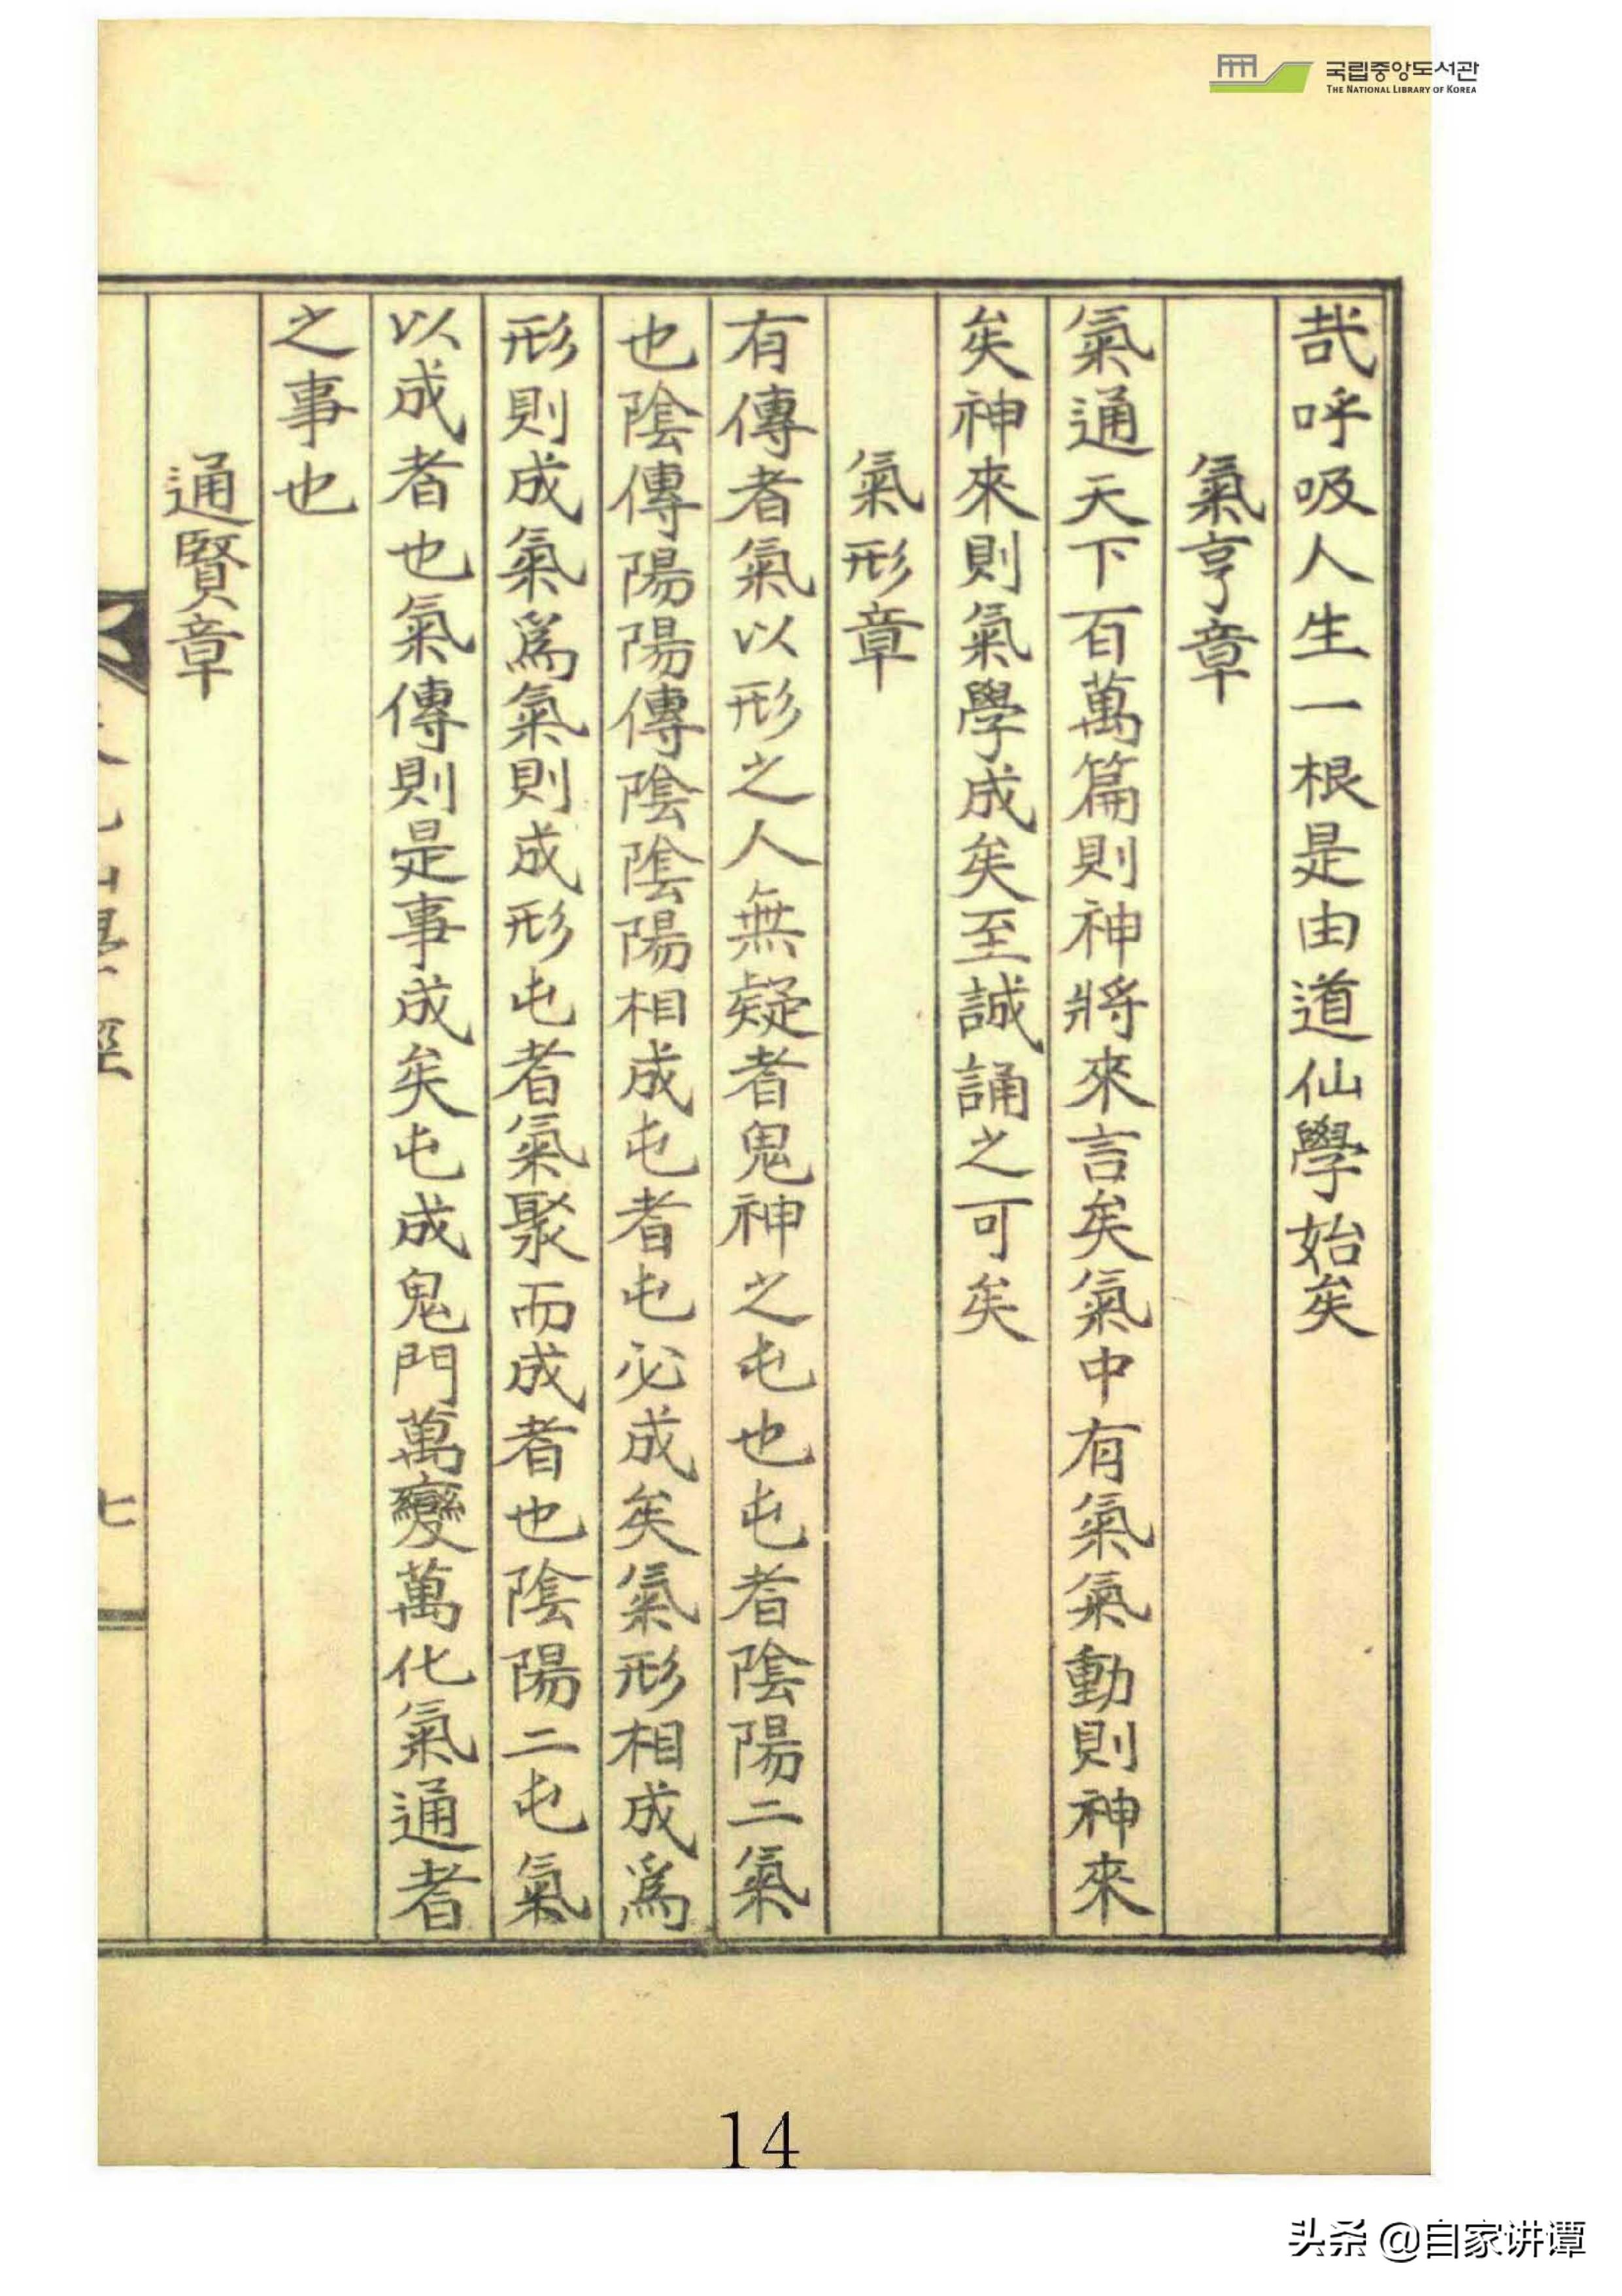 국립중앙도서관
THE NATIONAL LIBRARY OF KOREA
哉呼吸人生一根是由道仙學始矣
氣亨章
氣通天下百萬篇則神將來言矣氣中有氣氣動則神來
矣神來則氣學成矣至誠誦之可矣
氣形章
有傳者氣以形之人無疑者鬼神之屯也屯者陰陽二氣
也陰傳陽陽傳陰陰陽相成屯者屯必成矣氣形相成爲
形則成氣爲氣則成形屯者氣聚而成者也陰陽二屯氣
以成者也氣傳則是事成矣屯成鬼門萬變萬化氣通者
之事也
通賢章
七
14
头条 @自家讲谭